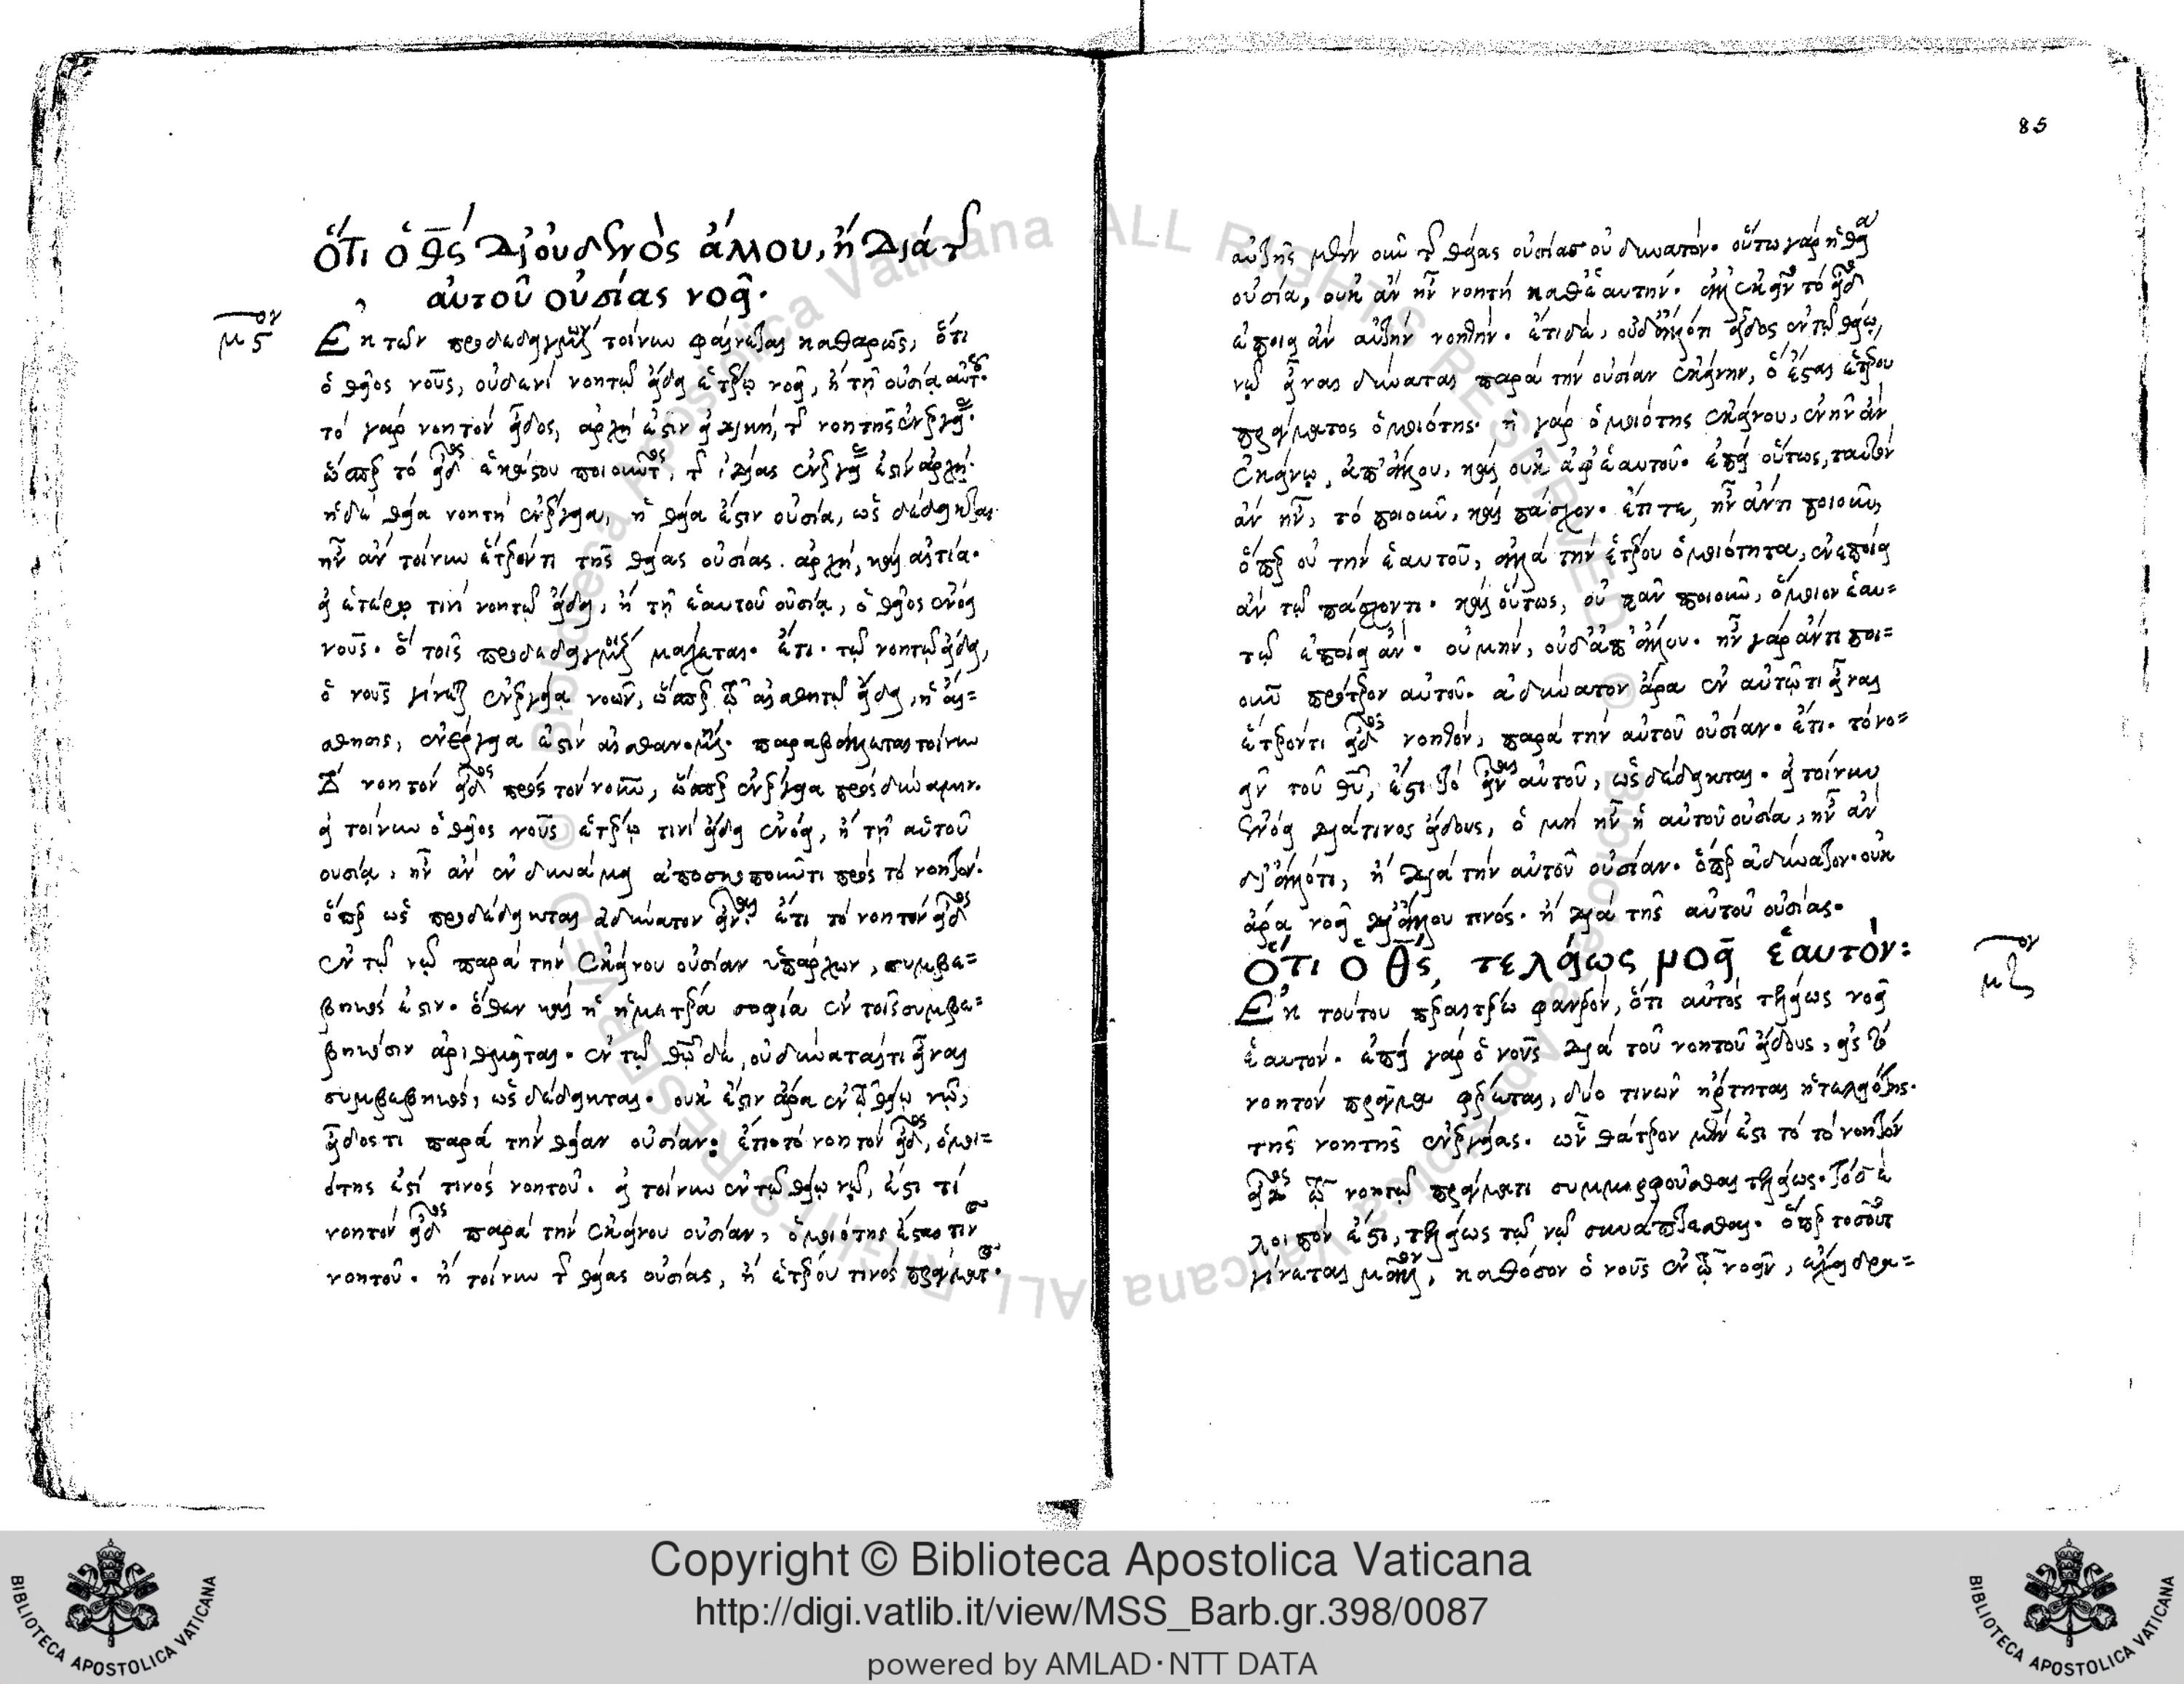 ὅτι ὁ θς δι' οὐδενὸς ἄλλου, ἢ διὰ τ
αὐτοῦ οὐσίας νοεῖ.
μϛον
Ἐκ τῶν προδεδειγμένων τοίνυν φαίνεται καθαρῶς, ὅτι
ὁ θεῖος νοῦς, οὐδενὶ νοητῷ εἴδει ἑτέρῳ νοεῖ, ἢ τῇ οὐσίᾳ αὐτοῦ.
τὸ γὰρ νοητὸν εἶδος, ἀρχή ἐστιν εἰδικὴ, τῆς νοητῆς ἐνεργείας.
ὥσπερ τὸ εἶδος ἑκάστου ποιοῦντος, τῆς ἰδίας ἐνεργείας ἐστὶν ἀρχή.
ἡ δὲ θεία νοητὴ ἐνέργεια, ἡ θεία ἐστὶν οὐσία, ὡς δέδεικται.
ἦν ἂν τοίνυν ἕτερόν τι τῆς θείας οὐσίας ἀρχὴ, καὶ αἰτία.
εἰ ἑτέρῳ τινὶ νοητῷ εἴδει, ἢ τῇ ἑαυτοῦ οὐσίᾳ, ὁ θεῖος ἐνόει
νοῦς. ὃ τοῖς προδεδειγμένοις μάχεται. ἔτι. τῷ νοητῷ εἴδει,
ὁ νοῦς γίνεται ἐνεργείᾳ νοῶν, ὥσπερ τῷ αἰσθητῷ εἴδει, ἡ αἴ=
σθησις, ἐνέργεια ἐστὶν αἰσθανομένη. παραβάλλεται τοίνυν
τὸ νοητὸν εἶδος πρὸς τὸν νοῦν, ὥσπερ ἐνέργεια πρὸς δύναμιν.
εἰ τοίνυν ὁ θεῖος νοῦς ἑτέρῳ τινὶ εἴδει ἐνόει, ἢ τῇ αὑτοῦ
οὐσίᾳ, ἦν ἂν ἐν δυνάμει
ὅπερ ὡς προδέδεικται ἀδύνατον εἶναι. ἔτι τὸ νοητὸν εἶδος
ἐν τῷ νῷ παρὰ τὴν ἐκείνου οὐσίαν ὑπάρχων, συμβε=
βηκός ἐστιν. ὅθεν καὶ ἡ ἡμετέρα σοφία ἐν τοῖς συμβε=
βηκόσιν ἀριθμεῖται. ἐν τῷ θῷ δὲ, οὐ δύναταί τι εἶναι
συμβεβηκός, ὡς δέδεικται. οὐκ ἔστιν ἄρα ἐν τῷ θείῳ νῷ,
εἶδος τι παρὰ τὴν θείαν οὐσίαν: ἔτι τὸ νοητὸν εἶδος, ὁμοι=
ότης ἐστί τινος νοητοῦ. εἰ τοίνυν ἐν τῷ θείῳ νῷ, ἐστί τι
νοητὸν εἶδος παρὰ τὴν ἐκείνου οὐσίαν, ὁμοιότης ἔσται τινος
νοητοῦ. ἢ τοίνυν τῆς θείας οὐσίας, ἢ ἑτέρου τινὸς πράγματος.
85
αὐτῆς μὲν οὖν τῆς θείας οὐσίας οὐ δυνατόν. οὕτω γὰρ ἡ θεία
οὐσία, οὐκ ἂν ἦν νοητὴ καθ' ἑαυτήν. ἀλλ' ἐκεῖνο τὸ εἶδος
ἐποίει ἂν αὐτὴν νοητήν. ἔτι δὲ, οὐδ' ἄλλό τι εἶδος ἐν τῷ θείῳ,
νῷ εἶναι δύναται παρὰ τὴν οὐσίαν ἐκείνην, ὃ ἔσται ἑτέρου
πράγματος ὁμοιότης. ἡ γὰρ ὁμοιότης ἐκείνου, ἐνῆν ἂν
ἐκείνῳ, ἀπ' ἄλλου, καὶ οὐκ ἀφ' ἑαυτοῦ. ἐπεὶ οὕτως, ταὐτὸν
ἂν ἦν, τὸ ποιοῦν, καὶ πάσχον. ἔτι τε, ἦν ἄν τι ποιοῦν,
ὅπερ οὐ τὴν ἑαυτοῦ, ἀλλὰ τὴν ἑτέρου ὁμοιότητα, ἐνεποίει
ἂν τῷ πάσχοντι. καὶ οὕτως, οὐ πᾶν ποιοῦν, ὅμοιον ἑαυ=
τῷ ἐποίει ἄν. οὐ μὴν, οὐδ' ἀπ' ἄλλου. ἦν γὰρ ἄν τι ποι=
οῦν πρότερον αὐτοῦ. ἀδύνατον ἄρα ἐν αὐτῷ τι εἶναι
ἕτερόν τι εἶδος νοητὸν, παρὰ τὴν αὐτοῦ οὐσίαν. ἔτι. τὸ νο=
εῖν τοῦ θῦ, ἐστὶ τὸ εἶναι αὐτοῦ, ὡς δέδεικται. εἰ τοίνυν
ἐνόει διά τινος εἴδους, ὃ μὴ ἦν ἡ αὐτοῦ οὐσία, ἦν ἂν
δι' ἄλλό τι, ἢ διὰ τὴν αὐτοῦ οὐσίαν. ὅπερ ἀδύνατον. οὐκ
ἄρα νοεῖ δι' ἄλλου τινός. ἢ διὰ τῆς αὐτοῦ οὐσίας.
ὅτι ὁ θς, τελείως νοεῖ ἑαυτόν:
μζον
Ἐκ τούτου περαιτέρω φανερὸν, ὅτι αὐτὸς τελείως νοεῖ
ἑαυτόν. ἐπεὶ γὰρ ὁ νοῦς διὰ τοῦ νοητοῦ εἴδους, εἰς τὸ
νοητὸν πρᾶγμα φέρεται, δύο τινῶν ἤρτηται ἡ τελειότης.
τῆς νοητῆς ἐνεργείας. ὧν θάτερον μὲν ἐστὶ τὸ τὸ νοητὸν
εἶδος τῷ νοητῷ πράγματι συμμορφοῦσθαι τελείως. τὸ δὲ
λοιπόν ἐστι, τελείως τῷ νῷ συνάπτεσθαι. ὅπερ τοσοῦτον
γίνεται μᾶλλον, καθόσον ὁ νοῦς ἐν τῷ νοεῖν,